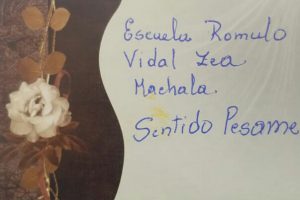 Escuela Romulo
Vidal Zea
Machala.
Sentido Pesame